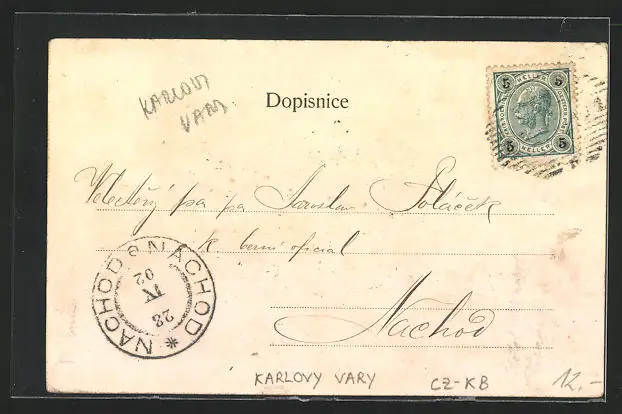 KARLOVY
VARY
Dopisnice
5 HELLER 5
5 HELLER 5
Velectěný pan pan Jaroslav Poláček
k. berní oficial
Náchod
NÁCHOD NÁCHOD
28
IV
02
KARLOVY VARY CZ-KB 12,-